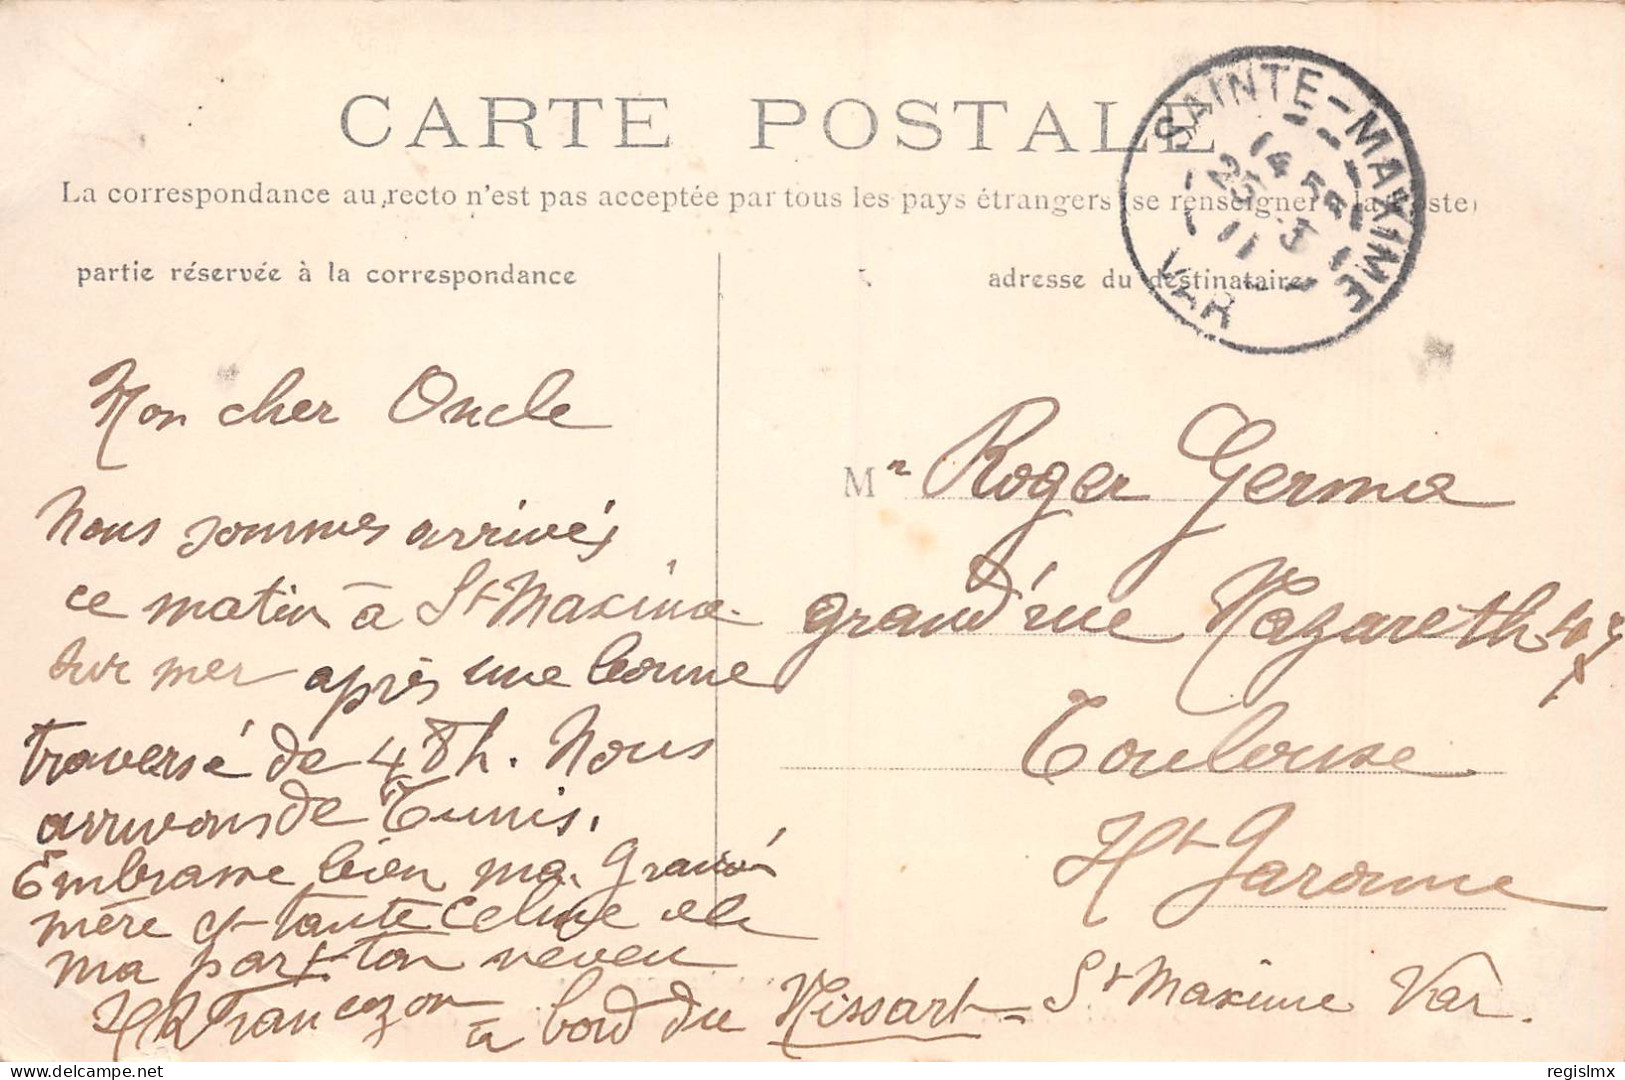 CARTE POSTALE
La correspondance au recto n'est pas acceptée par tous les pays étrangers (se renseigner à la Poste)
partie réservée à la correspondance
adresse du destinataire
SAINTE-MAXIME
VAR
Mon cher Oncle
Nous sommes arrivés
ce matin à St Maxime
sur mer après une bonne
traversé de 48h. Nous
arrivons de Tunis.
Embrasse bien ma grand
mère et tante Celine de
ma part ton neveu
à bord du Nissart = St Maxime Var.
Mr Roger Germa
grand rue Nazareth
Toulouse
Hte Garonne
delcampe.net
regislmx